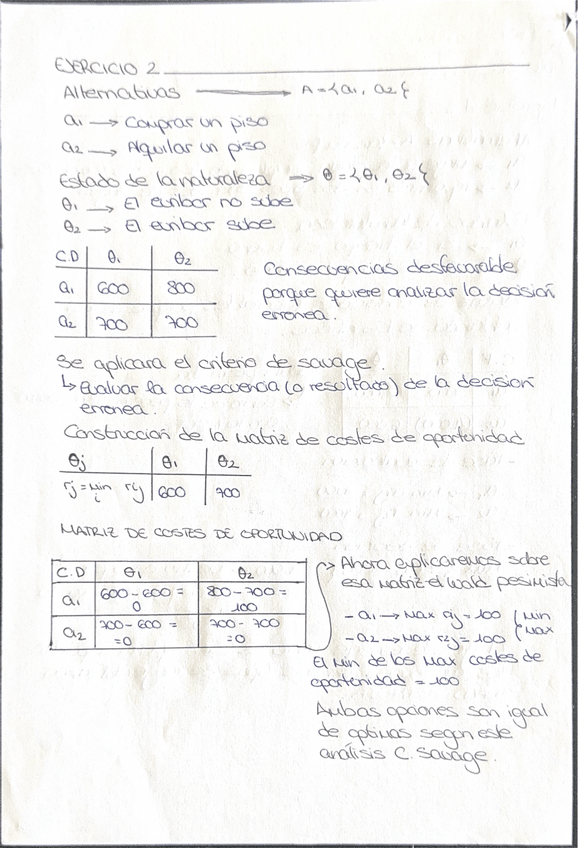 EJERCICIO 2
Alternativas → A = {a1, a2{
a1 → Comprar un piso
a2 → Alquilar un piso
Estado de la naturaleza → θ = {θ1, θ2{
θ1 → El euribor no sube
θ2 → El euribor sube
C.D θ1 θ2
a1 600 800
a2 700 700
Consecuencias desfavorable
porque quiere analizar la decisión
erronea.
Se aplicara el criterio de savage.
↳ Evaluar la consecuencia (o resultado) de la decisión
erronea.
Construccion de la matriz de costes de oportunidad
θj θ1 θ2
rj = min i rij 600 700
MATRIZ DE COSTES DE OPORTUNIDAD
C.D θ1 θ2
a1 600 - 600 = 0 800 - 700 = 100
a2 700 - 600 = =0 700 - 700 =0
Ahora explicaremos sobre
esa matriz el Wald pesimista
- a1 → Max rij = 100 (Min
- a2 → Max r2j = 100 (Max
El Min de los Max costes de
oportenidad = 100
Ambas opciones son igual
de optimas segun este
análisis C. Savage.